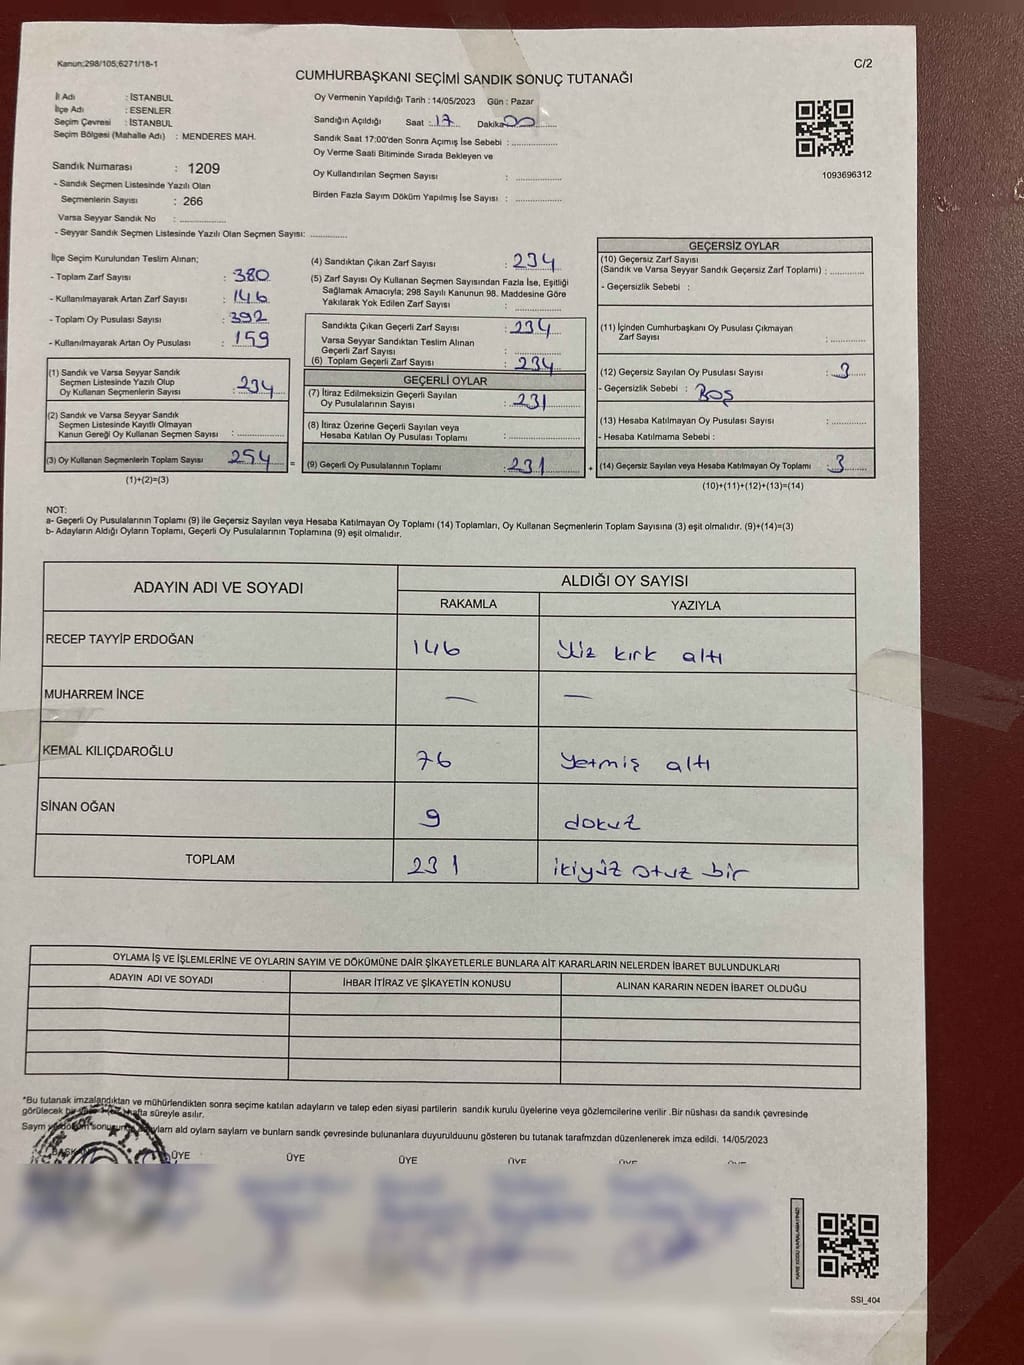 Kanun:298/105;6271/18-1
C/2
CUMHURBAŞKANI SEÇİMİ SANDIK SONUÇ TUTANAĞI
İl Adı : İSTANBUL
İlçe Adı : ESENLER
Seçim Çevresi : İSTANBUL
Seçim Bölgesi (Mahalle Adı) : MENDERES MAH.
Sandık Numarası : 1209
- Sandık Seçmen Listesinde Yazılı Olan
Seçmenlerin Sayısı : 266
Varsa Seyyar Sandık No :
- Seyyar Sandık Seçmen Listesinde Yazılı Olan Seçmen Sayısı:
Oy Vermenin Yapıldığı Tarih : 14/05/2023 Gün : Pazar
Sandığın Açıldığı Saat : 17 Dakika 00
Sandık Saat 17:00'den Sonra Açımış İse Sebebi :
Oy Verme Saati Bitiminde Sırada Bekleyen ve
Oy Kullandırılan Seçmen Sayısı :
Birden Fazla Sayım Döküm Yapılmış İse Sayısı :
1093696312
İlçe Seçim Kurulundan Teslim Alınan;
- Toplam Zarf Sayısı : 380
- Kullanılmayarak Artan Zarf Sayısı : 146
- Toplam Oy Pusulası Sayısı : 392
- Kullanılmayarak Artan Oy Pusulası : 159
(1) Sandık ve Varsa Seyyar Sandık
Seçmen Listesinde Yazılı Olup
Oy Kullanan Seçmenlerin Sayısı : 234
(2) Sandık ve Varsa Seyyar Sandık
Seçmen Listesinde Kayıtlı Olmayan
Kanun Gereği Oy Kullanan Seçmen Sayısı :
(3) Oy Kullanan Seçmenlerin Toplam Sayısı 254
(1)+(2)=(3)
(4) Sandıktan Çıkan Zarf Sayısı : 234
(5) Zarf Sayısı Oy Kullanan Seçmen Sayısından Fazla İse, Eşitliği
Sağlamak Amacıyla; 298 Sayılı Kanunun 98. Maddesine Göre
Yakılarak Yok Edilen Zarf Sayısı :
Sandıkta Çıkan Geçerli Zarf Sayısı : 234
Varsa Seyyar Sandıktan Teslim Alınan
Geçerli Zarf Sayısı :
(6) Toplam Geçerli Zarf Sayısı : 234
GEÇERLİ OYLAR
(7) İtiraz Edilmeksizin Geçerli Sayılan
Oy Pusulalarının Sayısı : 231
(8) İtiraz Üzerine Geçerli Sayılan veya
Hesaba Katılan Oy Pusulası Toplamı :
= (9) Geçerli Oy Pusulalarının Toplamı : 231
GEÇERSİZ OYLAR
(10) Geçersiz Zarf Sayısı
(Sandık ve Varsa Seyyar Sandık Geçersiz Zarf Toplamı) :
- Geçersizlik Sebebi :
(11) İçinden Cumhurbaşkanı Oy Pusulası Çıkmayan
Zarf Sayısı :
(12) Geçersiz Sayılan Oy Pusulası Sayısı : 3
- Geçersizlik Sebebi : Boş
(13) Hesaba Katılmayan Oy Pusulası Sayısı :
- Hesaba Katılmama Sebebi :
+ (14) Geçersiz Sayılan veya Hesaba Katılmayan Oy Toplamı : 3
(10)+(11)+(12)+(13)=(14)
NOT:
a- Geçerli Oy Pusulalarının Toplamı (9) ile Geçersiz Sayılan veya Hesaba Katılmayan Oy Toplamı (14) Toplamları, Oy Kullanan Seçmenlerin Toplam Sayısına (3) eşit olmalıdır. (9)+(14)=(3)
b- Adayların Aldığı Oyların Toplamı, Geçerli Oy Pusulalarının Toplamına (9) eşit olmalıdır.
ADAYIN ADI VE SOYADI ALDIĞI OY SAYISI
RAKAMLA YAZIYLA
RECEP TAYYİP ERDOĞAN 146 yüz kırk altı
MUHARREM İNCE — —
KEMAL KILIÇDAROĞLU 76 yetmiş altı
SİNAN OĞAN 9 dokuz
TOPLAM 231 ikiyüz otuz bir
OYLAMA İŞ VE İŞLEMLERİNE VE OYLARIN SAYIM VE DÖKÜMÜNE DAİR ŞİKAYETLERLE BUNLARA AİT KARARLARIN NELERDEN İBARET BULUNDUKLARI
ADAYIN ADI VE SOYADI İHBAR İTİRAZ VE ŞİKAYETİN KONUSU ALINAN KARARIN NEDEN İBARET OLDUĞU
*Bu tutanak imzalandıktan ve mühürlendikten sonra seçime katılan adayların ve talep eden siyasi partilerin sandık kurulu üyelerine veya gözlemcilerine verilir .Bir nüshası da sandık çevresinde
görülecek bir hafta süreyle asılır.
Saym ald oylam saylam ve bunlarn sandk çevresinde bulunanlara duyurulduunu gösteren bu tutanak tarafmzdan düzenlenerek imza edildi. 14/05/2023
ÜYE ÜYE ÜYE ÜYE ÜYE ÜYE
SSI_404